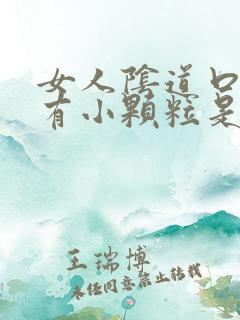 女人陰道口
有小顆粒是
王瑞博
未经同意禁止转载